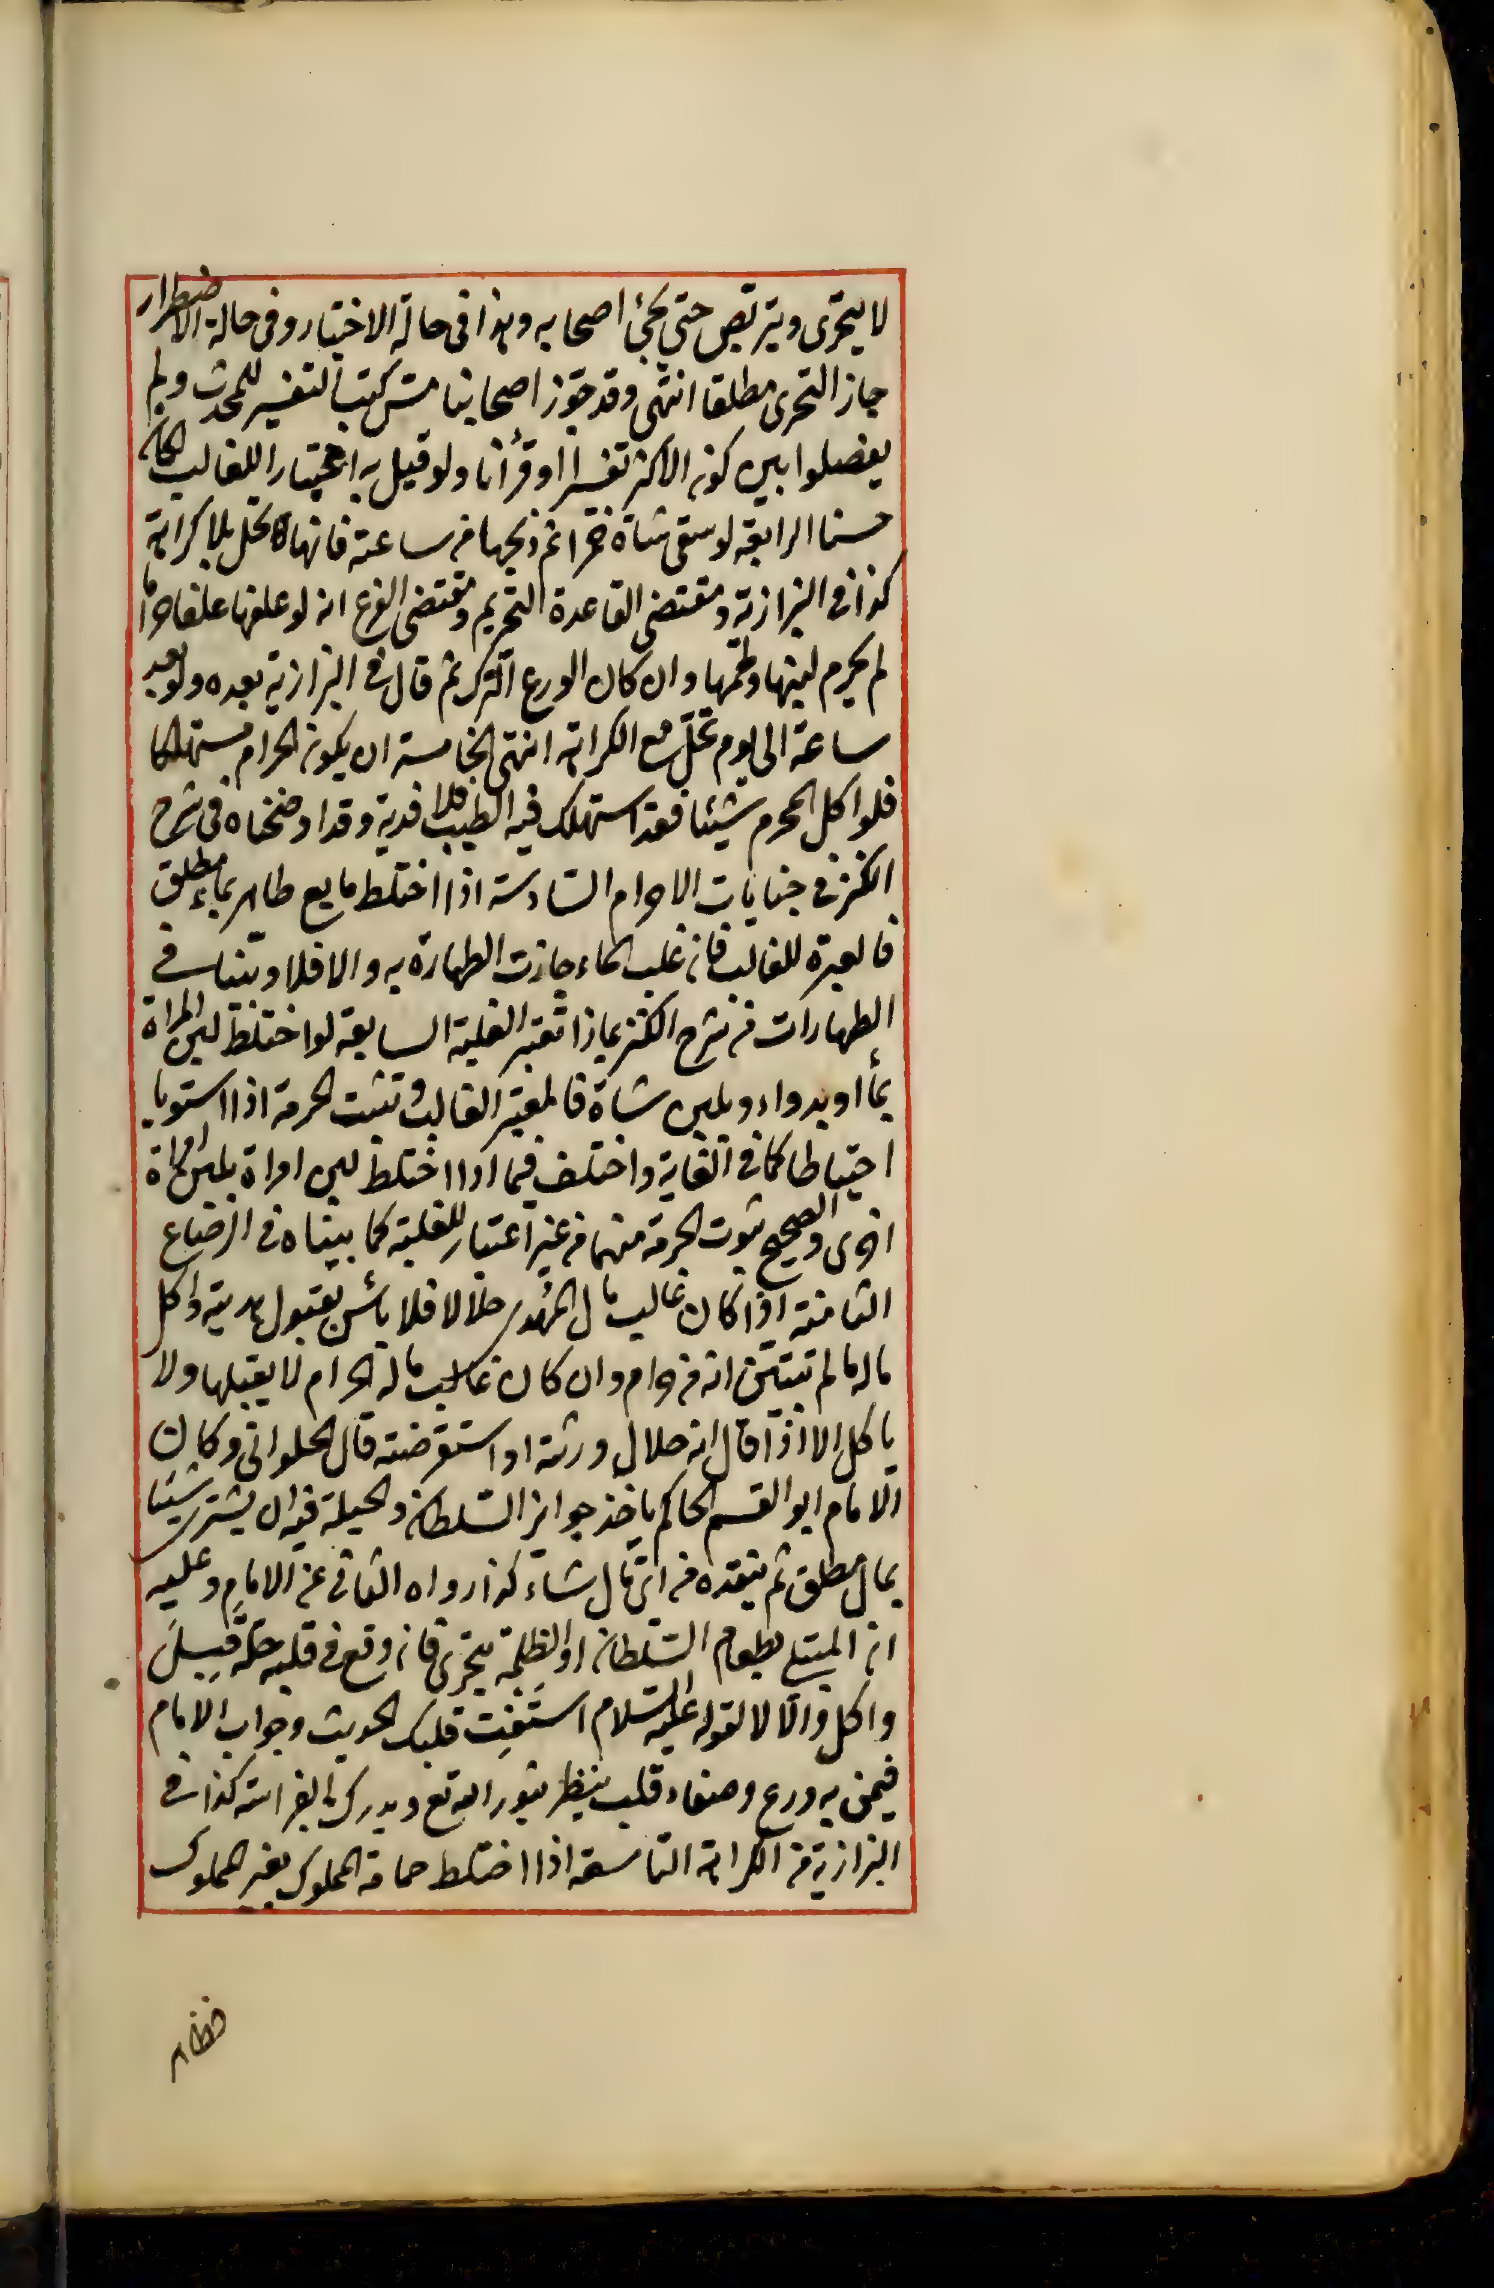 لا يتحرى ويتربص حتى يجئ اصحابه وهذا فى حالة الاختيار وفى حالة الاضطرار
جاز التحرى مطلقا انتهى وقد جوز اصحابنا مس كتب التفسير للمحدث ولم
يفصلوا بين كون الاكثر تفسيرا او قرأنا ولو قيل به اعتبارا للغالب لكان
حسنا الرابعة لو سقى شاة خمرا ثم ذبحها من ساعته فانها تحل بلا كراهة
كذا فى البزازية ومقتضى القاعدة التحريم ومقتضى الفرع انه لو علفها علفا حراما
لم يحرم لبنها ولحمها وان كان الورع الترك ثم قال فى البزازية بعده ولو بعد
ساعة الى يوم تحل مع الكراهة انتهى الخامسة ان يكون الحرام مستهلكا
فلو اكل المحرم شيئا فقد استهلك فيه الطيب فلا فدية وقد اوضحناه فى شرح
الكنز فى جنايات الاحرام السادسة اذا اختلط مايع طاهر بماء مطلق
فالعبرة للغالب فان غلب الماء جازت الطهارة به والا فلا وبينا فى
الطهارات من شرح الكنز بماذا تعتبر الغلبة السابعة لو اختلط لبن المراة
بماء او بدواء وبلبن شاة فالمعتبر الغالب وتثبت الحرمة اذا استويا
احتياطا كما فى الغاية واختلف فيما اذا اختلط لبن امراة بلبن امراة
اخرى والصحيح ثبوت الحرمة منهما من غير اعتبار للغلبة كما بيناه فى الرضاع
الثامنة اذا كان غالب مال المهدى حلالا فلا باس بقبول هديته واكل
ماله ما لم تتبين انه من حرام وان كان غالب ماله الحرام لا يقبلها ولا
ياكل الا اذا قال انه حلال ورثته او استقرضته قال الحلوانى وكان
الامام ابو القسم الحاكم ياخذ جوايز السلطان والحيلة فيه ان يشترى شيئا
بمال مطلق ثم ينقده من اى مال شاء كذا رواه الثانى عن الامام وعليه
ان المبتلى بطعام السلطان او الظلمة يتحرى فان وقع فى قلبه حله قبل
واكل والا لا لقوله عليه السلام استفت قلبك الحديث وجواب الامام
فيمن به ورع وصفاء قلب ينظر بنور الله تع ويدرك بالفراسة كذا فى
البزازية من الكراهة التاسعة اذا اختلط حمامة المملوك بغير المملوك